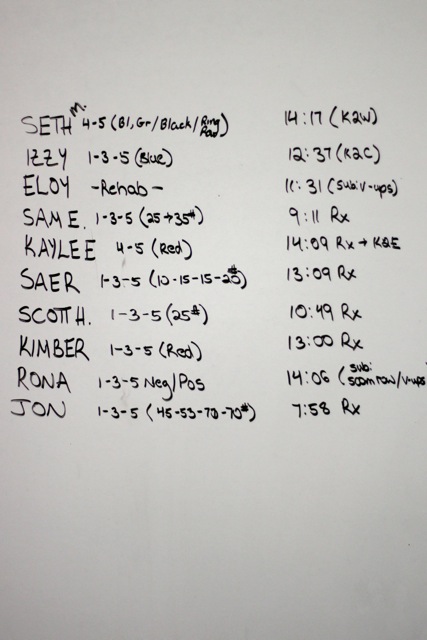 SETH M. 4-5 (Bl, Gr/Black/Ring Row) 14:17 (K2W)
IZZY 1-3-5 (Blue) 12:37 (K2C)
ELOY -Rehab- 11:31 (sub: v-ups)
SAM E. 1-3-5 (25→35#) 9:11 Rx
KAYLEE 4-5 (Red) 14:09 Rx → K2E
SAER 1-3-5 (10-15-15-25#) 13:09 Rx
SCOTT H. 1-3-5 (25#) 10:49 Rx
KIMBER 1-3-5 (Red) 13:00 Rx
RONA 1-3-5 Neg/Pos 14:06 (sub: 500m row/v-ups
JON 1-3-5 (45-53-70-70#) 7:58 Rx